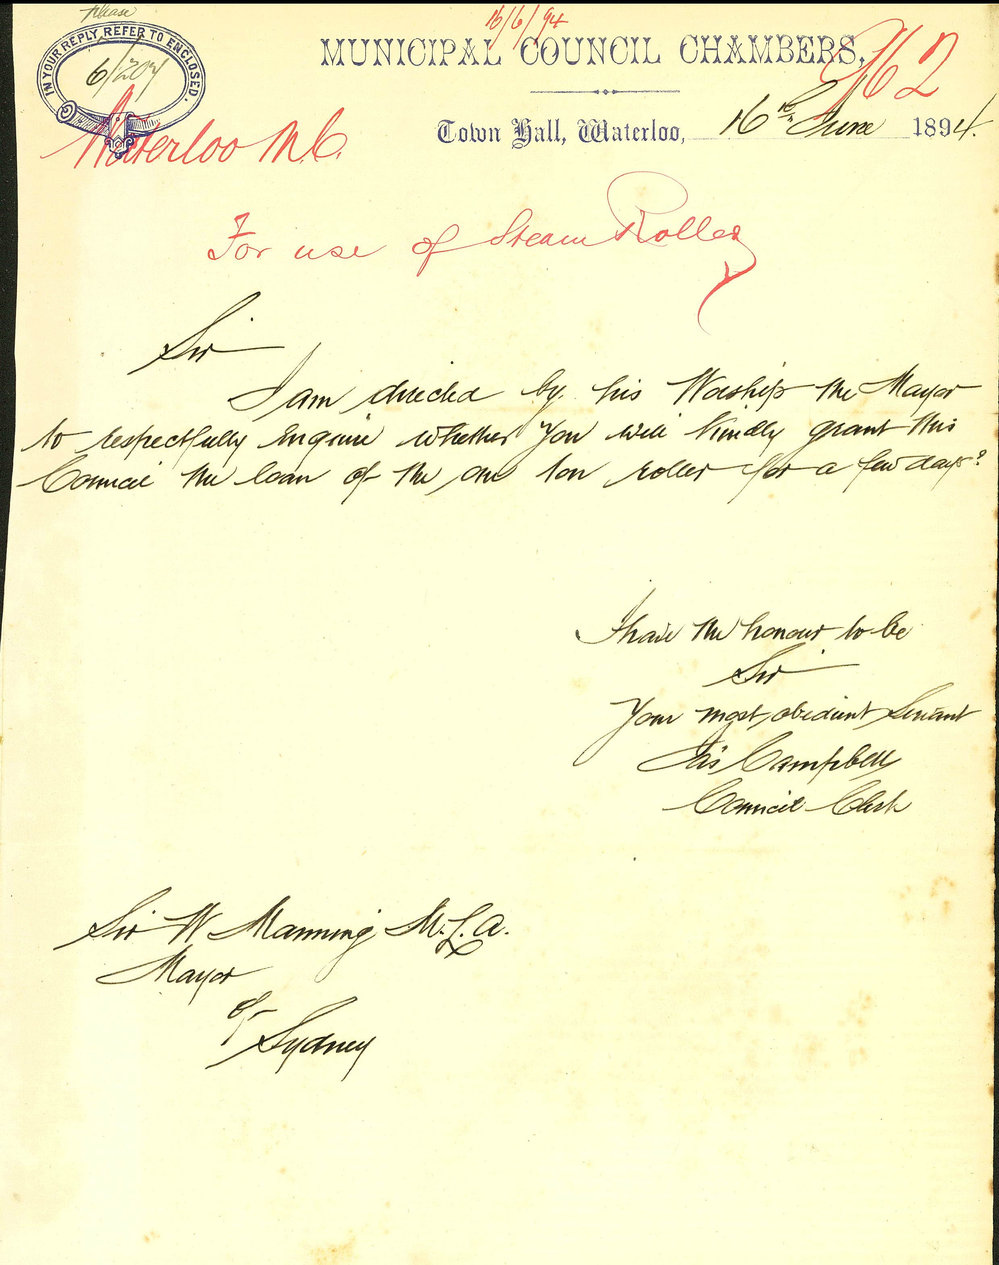 please
IN YOUR REPLY REFER TO ENCLOSED.
6/207
16/6/94
MUNICIPAL COUNCIL CHAMBERS,
962
Waterloo M.C.
Town Hall, Waterloo, 16th June 1894.
For use of Steam Roller
Sir
I am directed by his Worship the Mayor
to respectfully enquire whether you will kindly grant this
Council the loan of the one ton roller for a few days?
I have the honour to be
Sir
Your most obedient Servant
Jas Campbell
Council Clerk
Sir W Manning M.L.A.
Mayor
of
Sydney